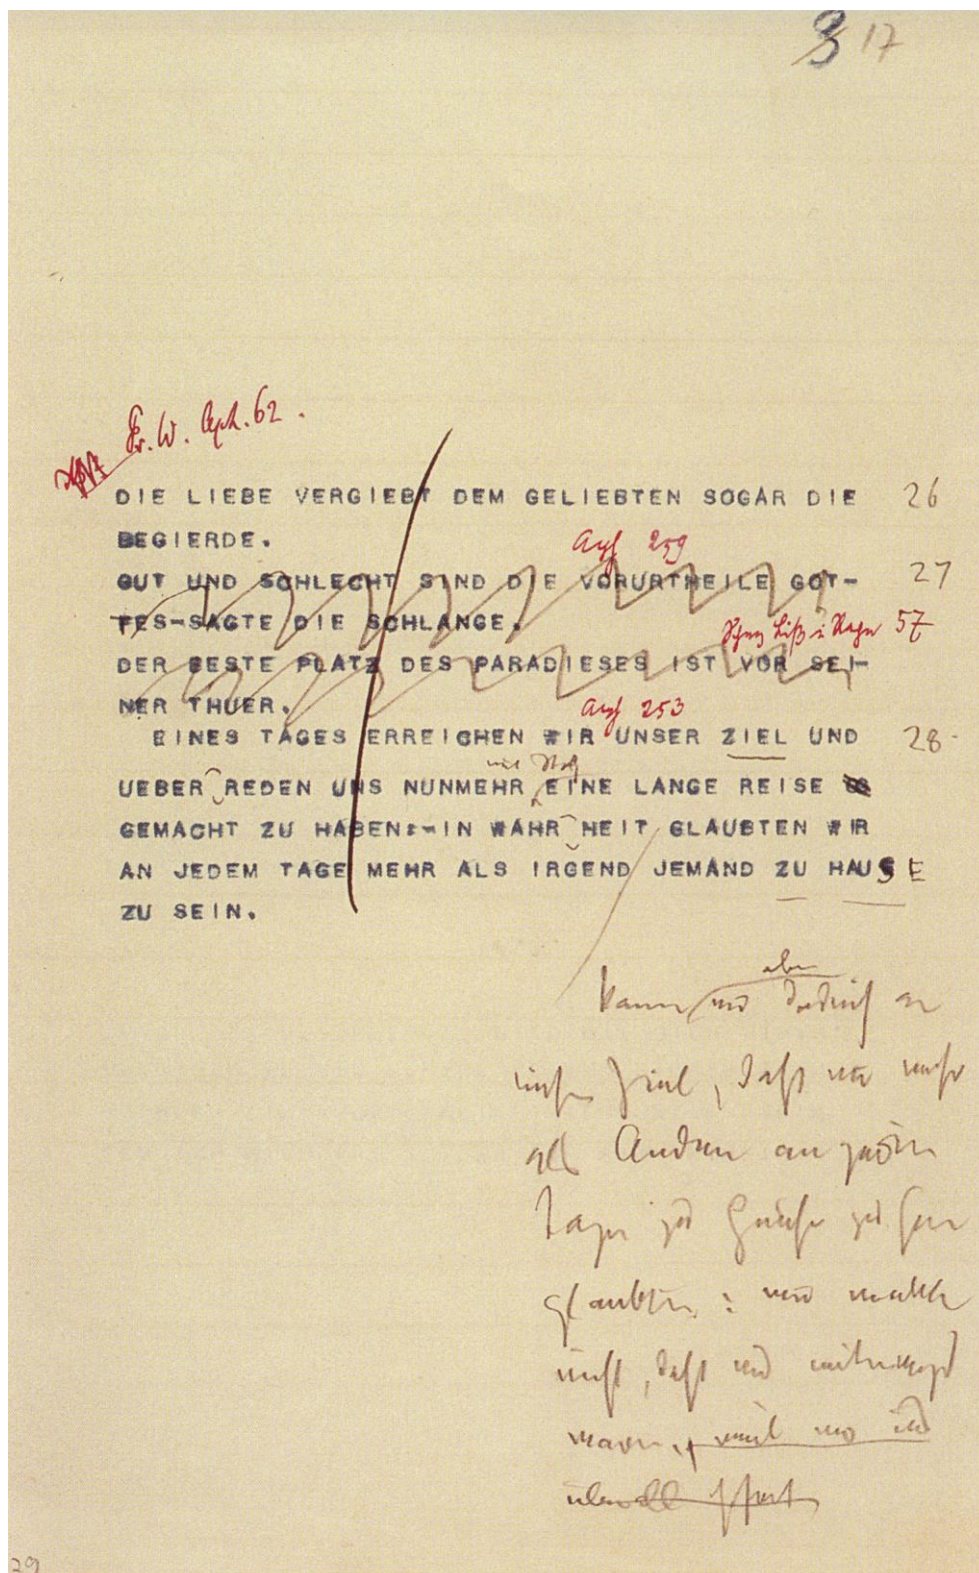 8 17
Fr. W. Aph. 62.
DIE LIEBE VERGIEBT DEM GELIEBTEN SOGAR DIE 26
BEGIERDE.
Aph 259
GUT UND SCHLECHT SIND DIE VORURTHEILE GOT- 27
TES-SAGTE DIE SCHLANGE.
57
DER BESTE PLATZ DES PARADIESES IST VOR SEI-
NER THUER.
Aph 253
EINES TAGES ERREICHEN WIR UNSER ZIEL UND 28
mit Stolz
UEBER REDEN UNS NUNMEHR EINE LANGE REISE
GEMACHT ZU HABEN:-IN WAHR HEIT GLAUBTEN WIR
AN JEDEM TAGE MEHR ALS IRGEND JEMAND ZU HAUSE
ZU SEIN.
aber
kamen wir dadurch an
Ziel, daß wir mehr
als Andere an jedem
Tage zu Hause zu sein
glaubten: wir merkten
nicht, daß wir unterwegs
waren, weil wir uns
überall
29